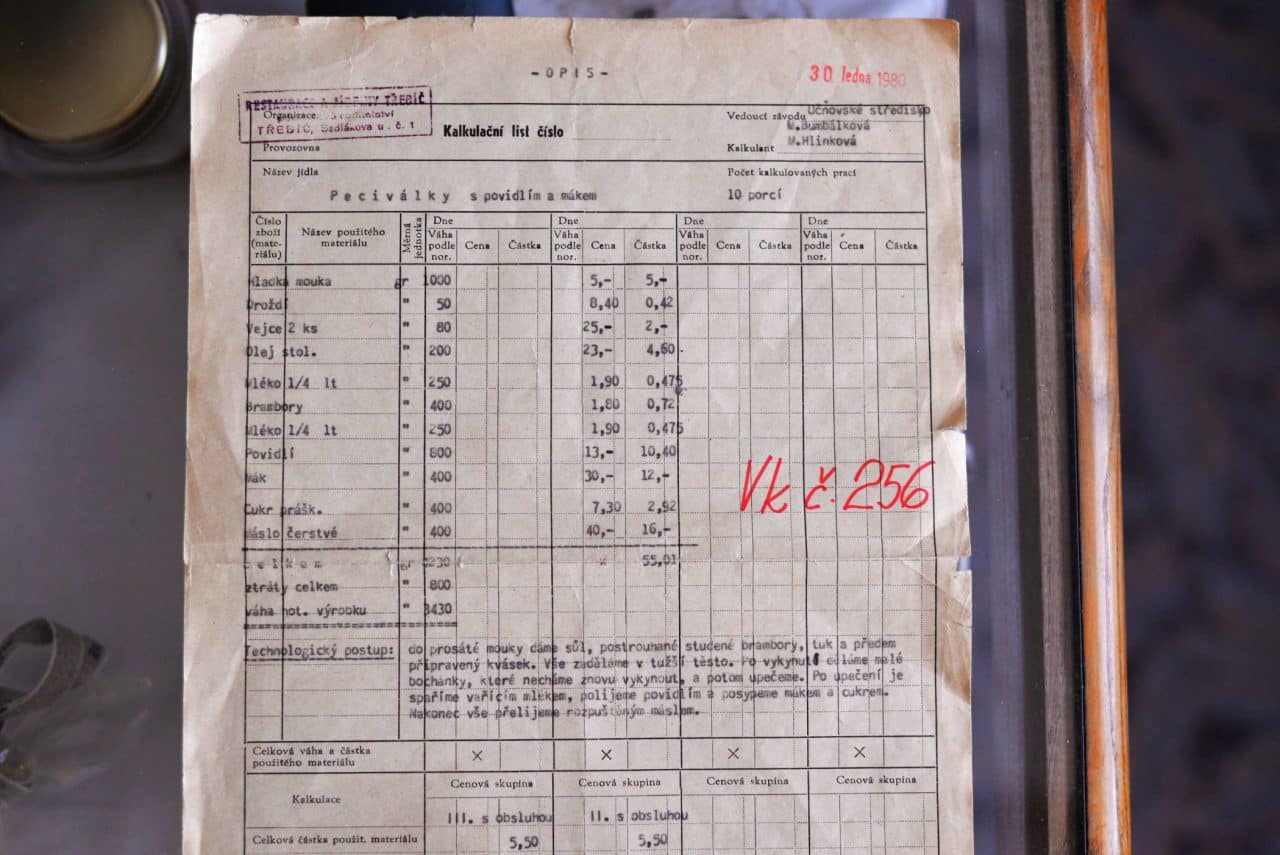 -OPIS-
30 ledna 1980
RESTAURACE A JÍDELNY TŘEBÍČ
TŘEBÍČ, Sedlákova u. č. 1
Organizace
Provozovna
Kalkulační list číslo
Učňovské středisko
Vedoucí závodu M.Bumbálková
Kalkulant M.Hlinková
Název jídla
Počet kalkulovaných prací
Peciválky s povidlím a mákem
10 porcí
Číslo zboží (mate-riálu) Název použitého materiálu Měrná jednotka Dne Dne Dne Dne
Váha podle nor. Cena Částka Váha podle nor. Cena Částka Váha podle nor. Cena Částka Váha podle nor. Cena Částka
Hladká mouka gr 1000 5,- 5,-
Droždí " 50 8,40 0,42
Vejce 2 ks " 80 25,- 2,-
Olej stol. " 200 23,- 4,60
Mléko 1/4 lt " 250 1,90 0,475
Brambory " 400 1,80 0,72
Mléko 1/4 lt " 250 1,90 0,475
Povidlí " 800 13,- 10,40
Mák " 400 30,- 12,-
Vk č. 256
Cukr prášk. " 400 7,30 2,92
Máslo čerstvé " 400 40,- 16,-
celkem gr x 55,01
ztráty celkem " 800
váha hot. výrobku " 3430
Technologický postup: do prosáté mouky dáme sůl, postrouhané studené brambory, tuk a předem
připravený kvásek. Vše zaděláme v tužší těsto. Po vykynutí děláme malé
bochánky, které necháme znovu vykynout, a potom upečeme. Po upečení je
spaříme vařícím mlékem, polijeme povidlím a posypeme mákem a cukrem.
Nakonec vše přelijeme rozpuštěným máslem.
Celková váha a částka
použitého materiálu × × × ×
Kalkulace
Cenová skupina Cenová skupina Cenová skupina Cenová skupina
III. s obsluhou II. s obsluhou
Celková částka použit. materiálu 5,50 5,50